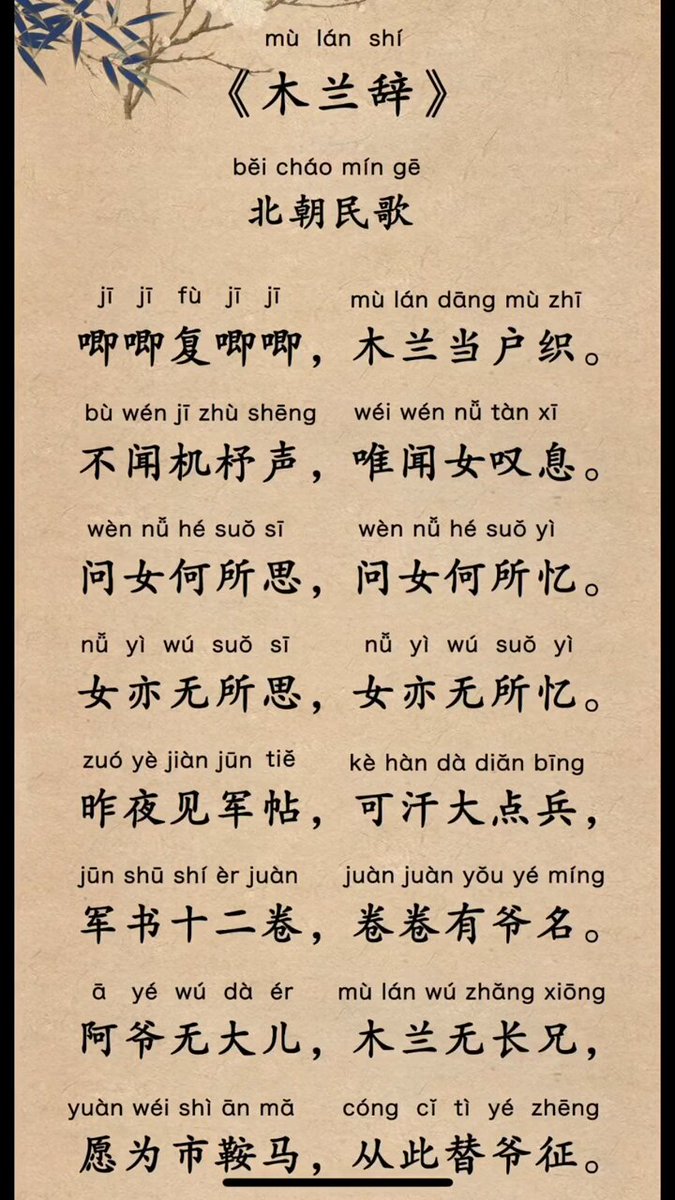 mù lán shí
《木兰辞》
běi cháo mín gē
北朝民歌
jī jī fù jī jī mù lán dāng mù zhī
唧唧复唧唧，木兰当户织。
bù wén jī zhù shēng wéi wén nǚ tàn xī
不闻机杼声，唯闻女叹息。
wèn nǚ hé suǒ sī wèn nǚ hé suǒ yì
问女何所思，问女何所忆。
nǚ yì wú suǒ sī nǚ yì wú suǒ yì
女亦无所思，女亦无所忆。
zuó yè jiàn jūn tiě kè hàn dà diǎn bīng
昨夜见军帖，可汗大点兵，
jūn shū shí èr juàn juàn juàn yǒu yé míng
军书十二卷，卷卷有爷名。
ā yé wú dà ér mù lán wú zhǎng xiōng
阿爷无大儿，木兰无长兄，
yuàn wéi shì ān mǎ cóng cǐ tì yé zhēng
愿为市鞍马，从此替爷征。